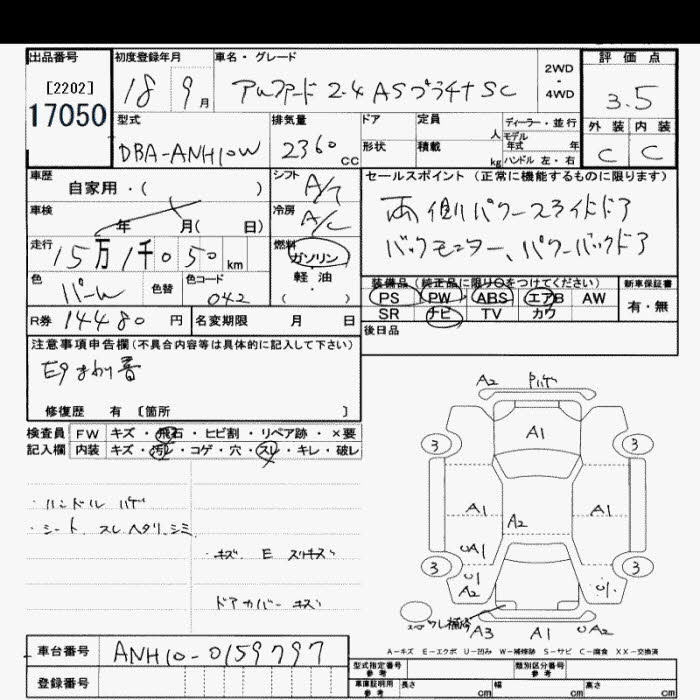 出品番号
[2202]
17050
初度登録年月
18 9月
車名・グレード
アルファード 2.4 ASプラチナSC
2WD
・
4WD
評価点
3.5
型式
DBA-ANH10W
排気量
2360 cc
ドア
形状
定員 人
積載 kg
ディーラー・並行
モデル年式 年
ハンドル 左・右
外装 内装
C C
車歴
自家用・( )
シフト
A/T
セールスポイント(正常に機能するものに限ります)
両側パワースライドドア
バックモニター、パワーバックドア
車検
年 月( 日)
冷房
A/C
走行
15万1千050km
燃料
ガソリン
軽油
( ・ )
色
パール
色替
色コード
042
装備品(純正品に限り○をつけてください)
PS PW ABS エアB AW
SR ナビ TV カワ
新車保証書
有・無
R券 14480円
名変期限 月 日
後日品
注意事項申告欄(不具合内容等は具体的に記入して下さい)
修復歴 有 [箇所 ]
検査員
記入欄
FW キズ・飛石・ヒビ割・リペア跡・×要
内装 キズ・汚れ・コゲ・穴・スレ・キレ・破レ
・ハンドル ハゲ
・シート、スレ ヘタリ、シミ
・キズ、E スリキズ
ドアカバーキズ
A2
A1
3 3
A1 A1
A2
UA1
3 3
U1
A2
A3 A1 UA2
A-キズ E-エクボ U-凹み W-補修跡 S-サビ C-腐食 XX-交換済
車台番号 ANH10-0159797
登録番号
型式指定番号
参考
類別区分番号
参考
車庫証明用
参考
長さ cm 幅 cm 高さ cm